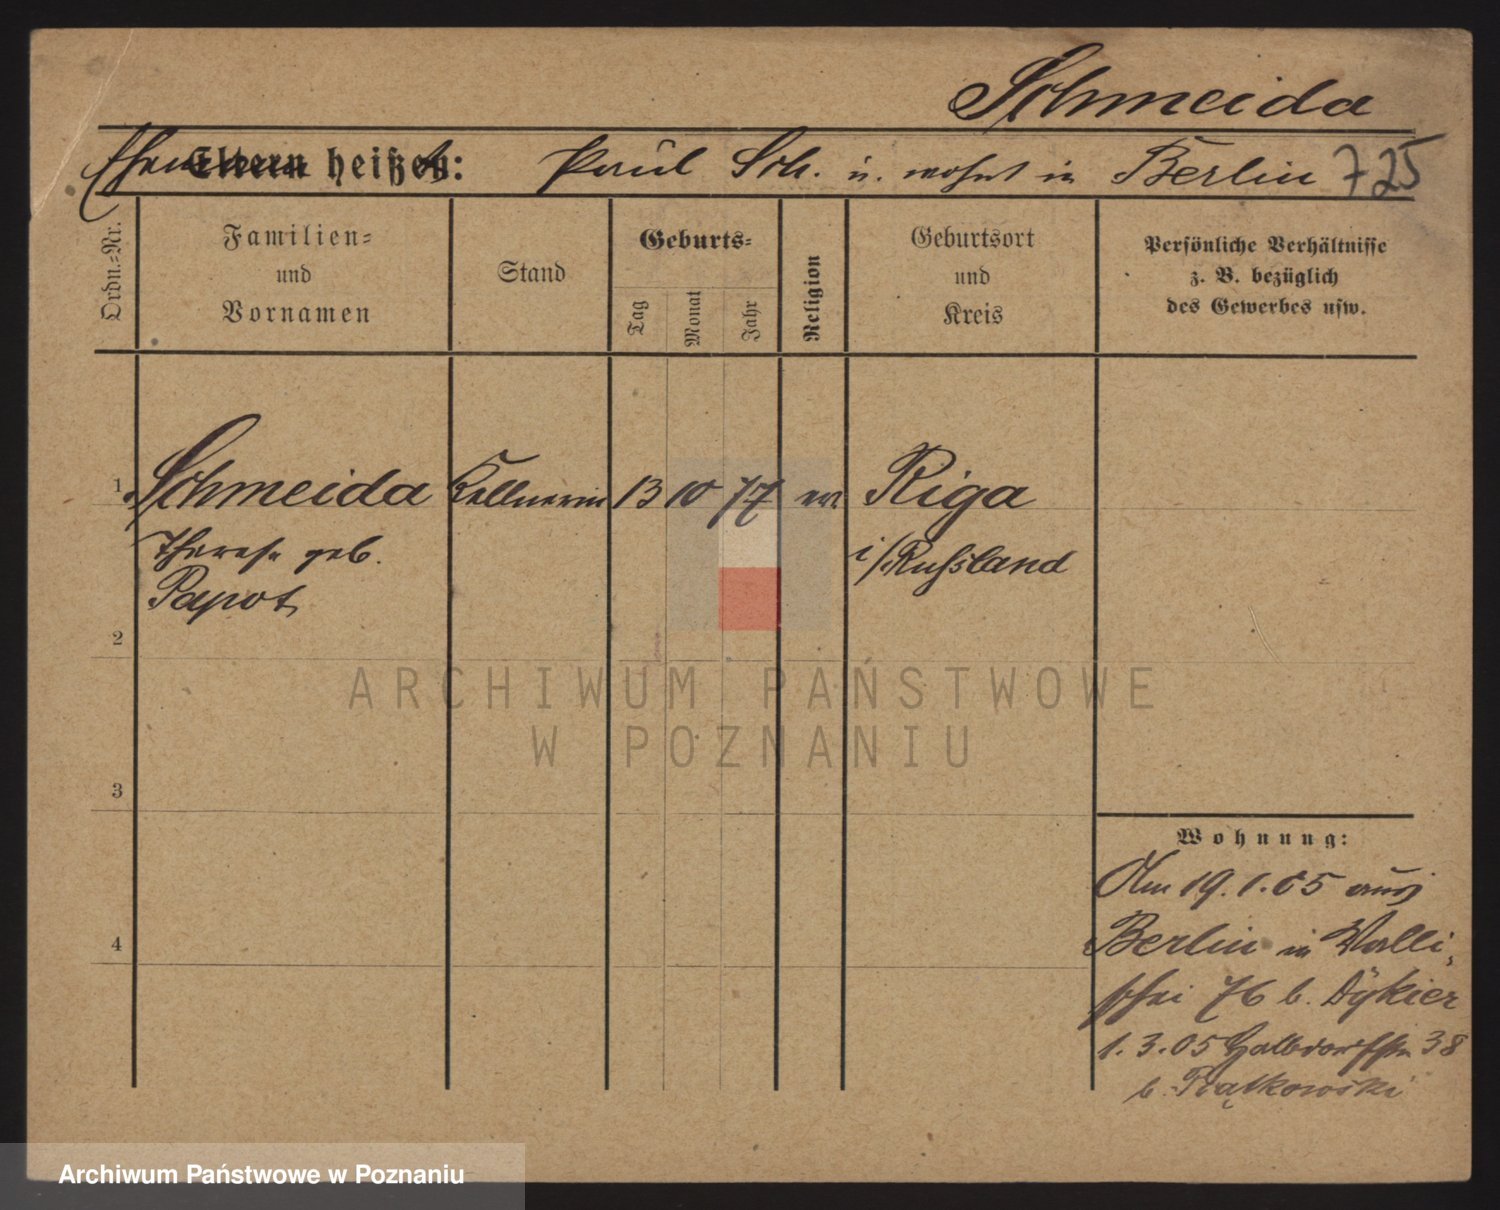 Schmeida
Ehemann heißt: Paul Sch. u. wohnt in Berlin 725
Ordn.=Nr.
Familien=
und
Vornamen
Stand
Geburts=
Tag
Monat
Jahr
Religion
Geburtsort
und
Kreis
Persönliche Verhältnisse
z. B. bezüglich
des Gewerbes usw.
1. Schmeida Kellnerin 13 10 77 ev. Riga
Therese geb. i/Russland
Papot
2
3
4
ARCHIWUM PAŃSTWOWE
W POZNANIU
Wohnung:
Am 19.1.05 aus
Berlin in Walli-
schei 76 b. Dykier
1.3.05 Halbdorfstr 38
b.
Archiwum Państwowe w Poznaniu